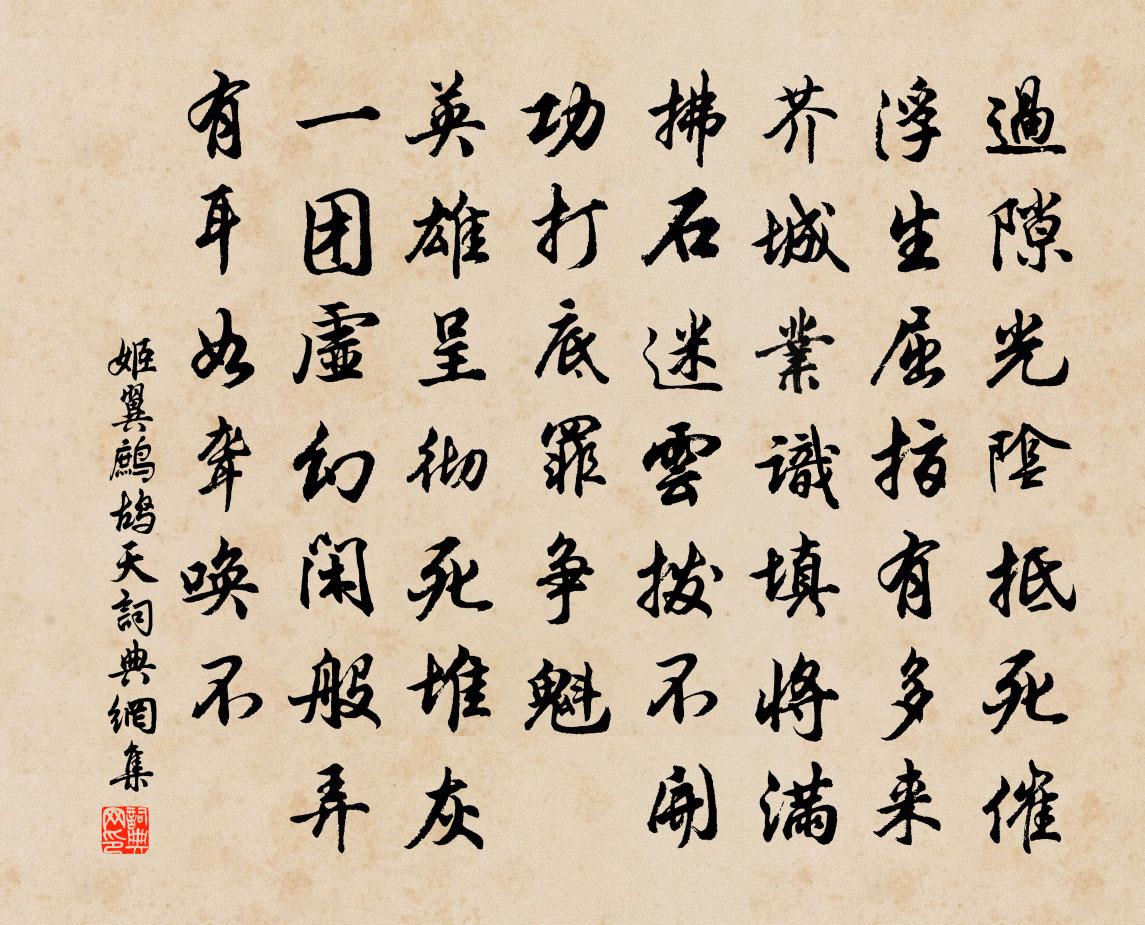 過隙光陰抵死催
浮生屈指有多来
芥城業識填將滿
拂石迷雲拨不開
功打底罪争魁
英雄呈彻死堆灰
一团虛幻閑般弄
有耳如聋唤不
姬翼鷓鴣天詞典網集
詞典网印